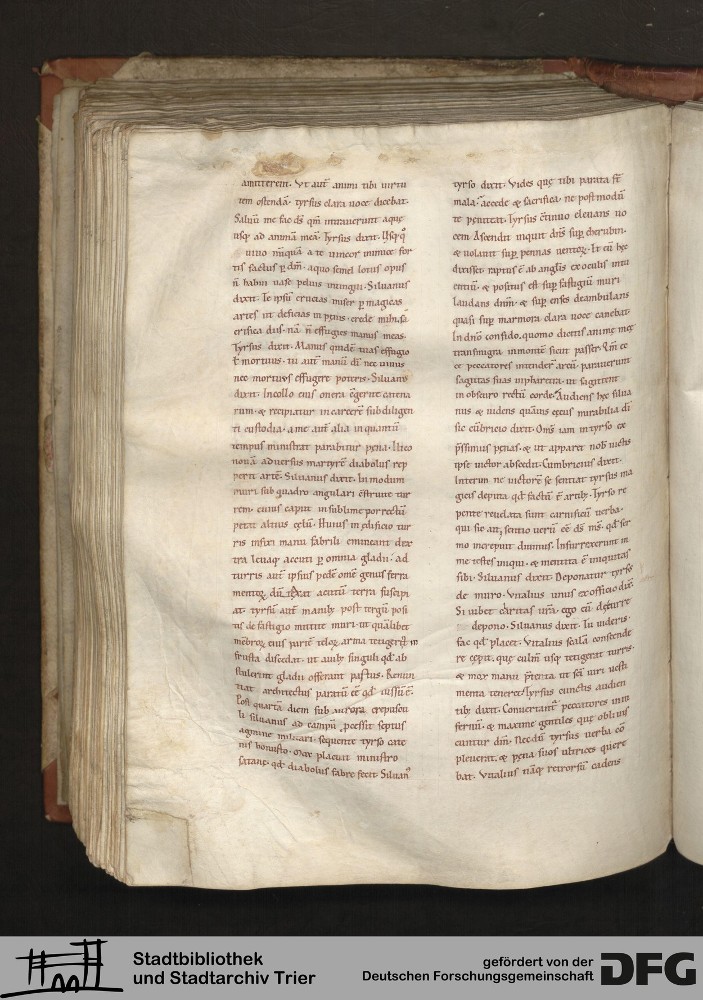 amitterem. Ut aut̄ animi tibi uirtu
tem ostendā. tyrsus clara uoce dicebat.
Saluū me fac ds̄ qm̄ intrauerunt aquę
usq; ad animā meā. Tyrsus dixit. Usq; q̊
uiuo nūquā a te uincor inimice for
tis factus ꝑ dm̄. aquo semel lotus opus
n̄ habui uase peluis intingui. Siluanus
dixit. Te ipsū crucias miser ꝑ magicas
artes ut deficias in penis. crede mihi. sa
crifica diis. nā n̄ effugies manus meas.
Tyrsus dixit. Manus quidē tuas effugio
mortuus. tu aut̄ manū dī nec uiuus
nec mortuus effugere poteris. Siluanus
dixit. In collo eius onera ēgerite catena
rum. & recipiatur in carcerē sub diligen
ti custodia. a me aut̄ alia in quantū
tempus ministrat parabitur pena. Itēo
nouā aduersus martyrē diabolus rep
perit artē. Siluanus dixit. In modum
muri sub quadro angulari ēstruite tur
rem. cuius caput in sublime porrectū
petat altius cęlū. Huius in ędificio tur
ris infixi manu fabrili emineant dex
tra leuaq; accuti ꝑ omnia gladii. ad
turris aut̄ ipsius pedē om̄e genus ferra
mentoꝝ dū texat acutū terra suscipi
at. tyrsū aut̄ manib; post tergū posi
tis de fastigio mittite muri. ut quālibet
mēbroꝝ eius partē teloꝝ arma tetigerīt in
frusta discedat. ut auib; singuli qd̄ ab
stulerint gladii offerant pastus. Renun
tiat architectus paratū eē qd̄ iussū ē.
Post quartā diem sub aurora crepuscu
li siluanus ad campū ꝓcessit septus
agmine militari. sequente tyrso cate
nis honusto. Mox placuit ministro
satanę. qd̄ diabolus fabre fecit. Siluan᷒
tyrso dixit. Vides quę tibi parata st̄
mala. accede & sacrifica. ne post modū
te peniteat. Tyrsus ētinuo eleuans uo
cem. Ascendit inquit dn̄s sup̄ cherubin.
& uolauit sup̄ pennas uentoꝝ. Et cū hęc
dixisset. raptus ē ab anglīs ex oculis intu
entiū. & positus est sup̄ fastigiū muri
laudans dnm̄. & sup̄ enses deambulans
quasi sup̄ marmora clara uoce canebat.
In dn̄o confido. quomo dicitis animę męę
transmigra in montē sicut passer. Qm̄ ec
ce peccatores intender̄ arcū. parauerunt
sagitas suas in pharetra. ut sagittent
in obscuro rectū corde. Audiens hęc silua
nus & uidens quāuis cęcus mirabilia dī
sic cūbricio dixit. Om̄s iam in tyrso ex
p̄ssimus penas. & ut apparet nob̄ uictis
ipse uictor abscedit. Cumbricius dixit.
Interim ne uictorē se sentiat tyrsus ma
gicis deputa qd̄ factū ē artib;. Tyrso re
pente reuelata sunt carnificū uerba.
qui sic ait. sentio uerū eē ds̄ ms̄. qd̄ ser
mo increpuit diuinus. Insurrexerunt in
me testes iniqui. & mentita ē iniquitas
sibi. Siluanus dixit. Deponatur tyrsus
de muro. Vitalius unus ex officio dix̄.
Si iubet caritas ur̄a. ego eū dęturre
depono. Siluanus dixit. Tu uideris.
fac qd̄ placet. Vitalius scalā conscende
re cępit. quę culm̄ usq; tetigerat turris.
& mox manu p̄tenta ut sc̄i uiri uesti
menta teneret. Tyrsus cunctis audien
tib; dixit. Conuertant᷒ peccatores in in
fernū. & maxime gentiles qui obliuis
cuntur dm̄. Nec dū tyrsus uerba cō
pleuerat. & pęna suos ultrices quere
bat. Vitalius nāq; retrorsū cadens
Stadtbibliothek
und Stadtarchiv Trier
gefördert von der
Deutschen Forschungsgemeinschaft
DFG